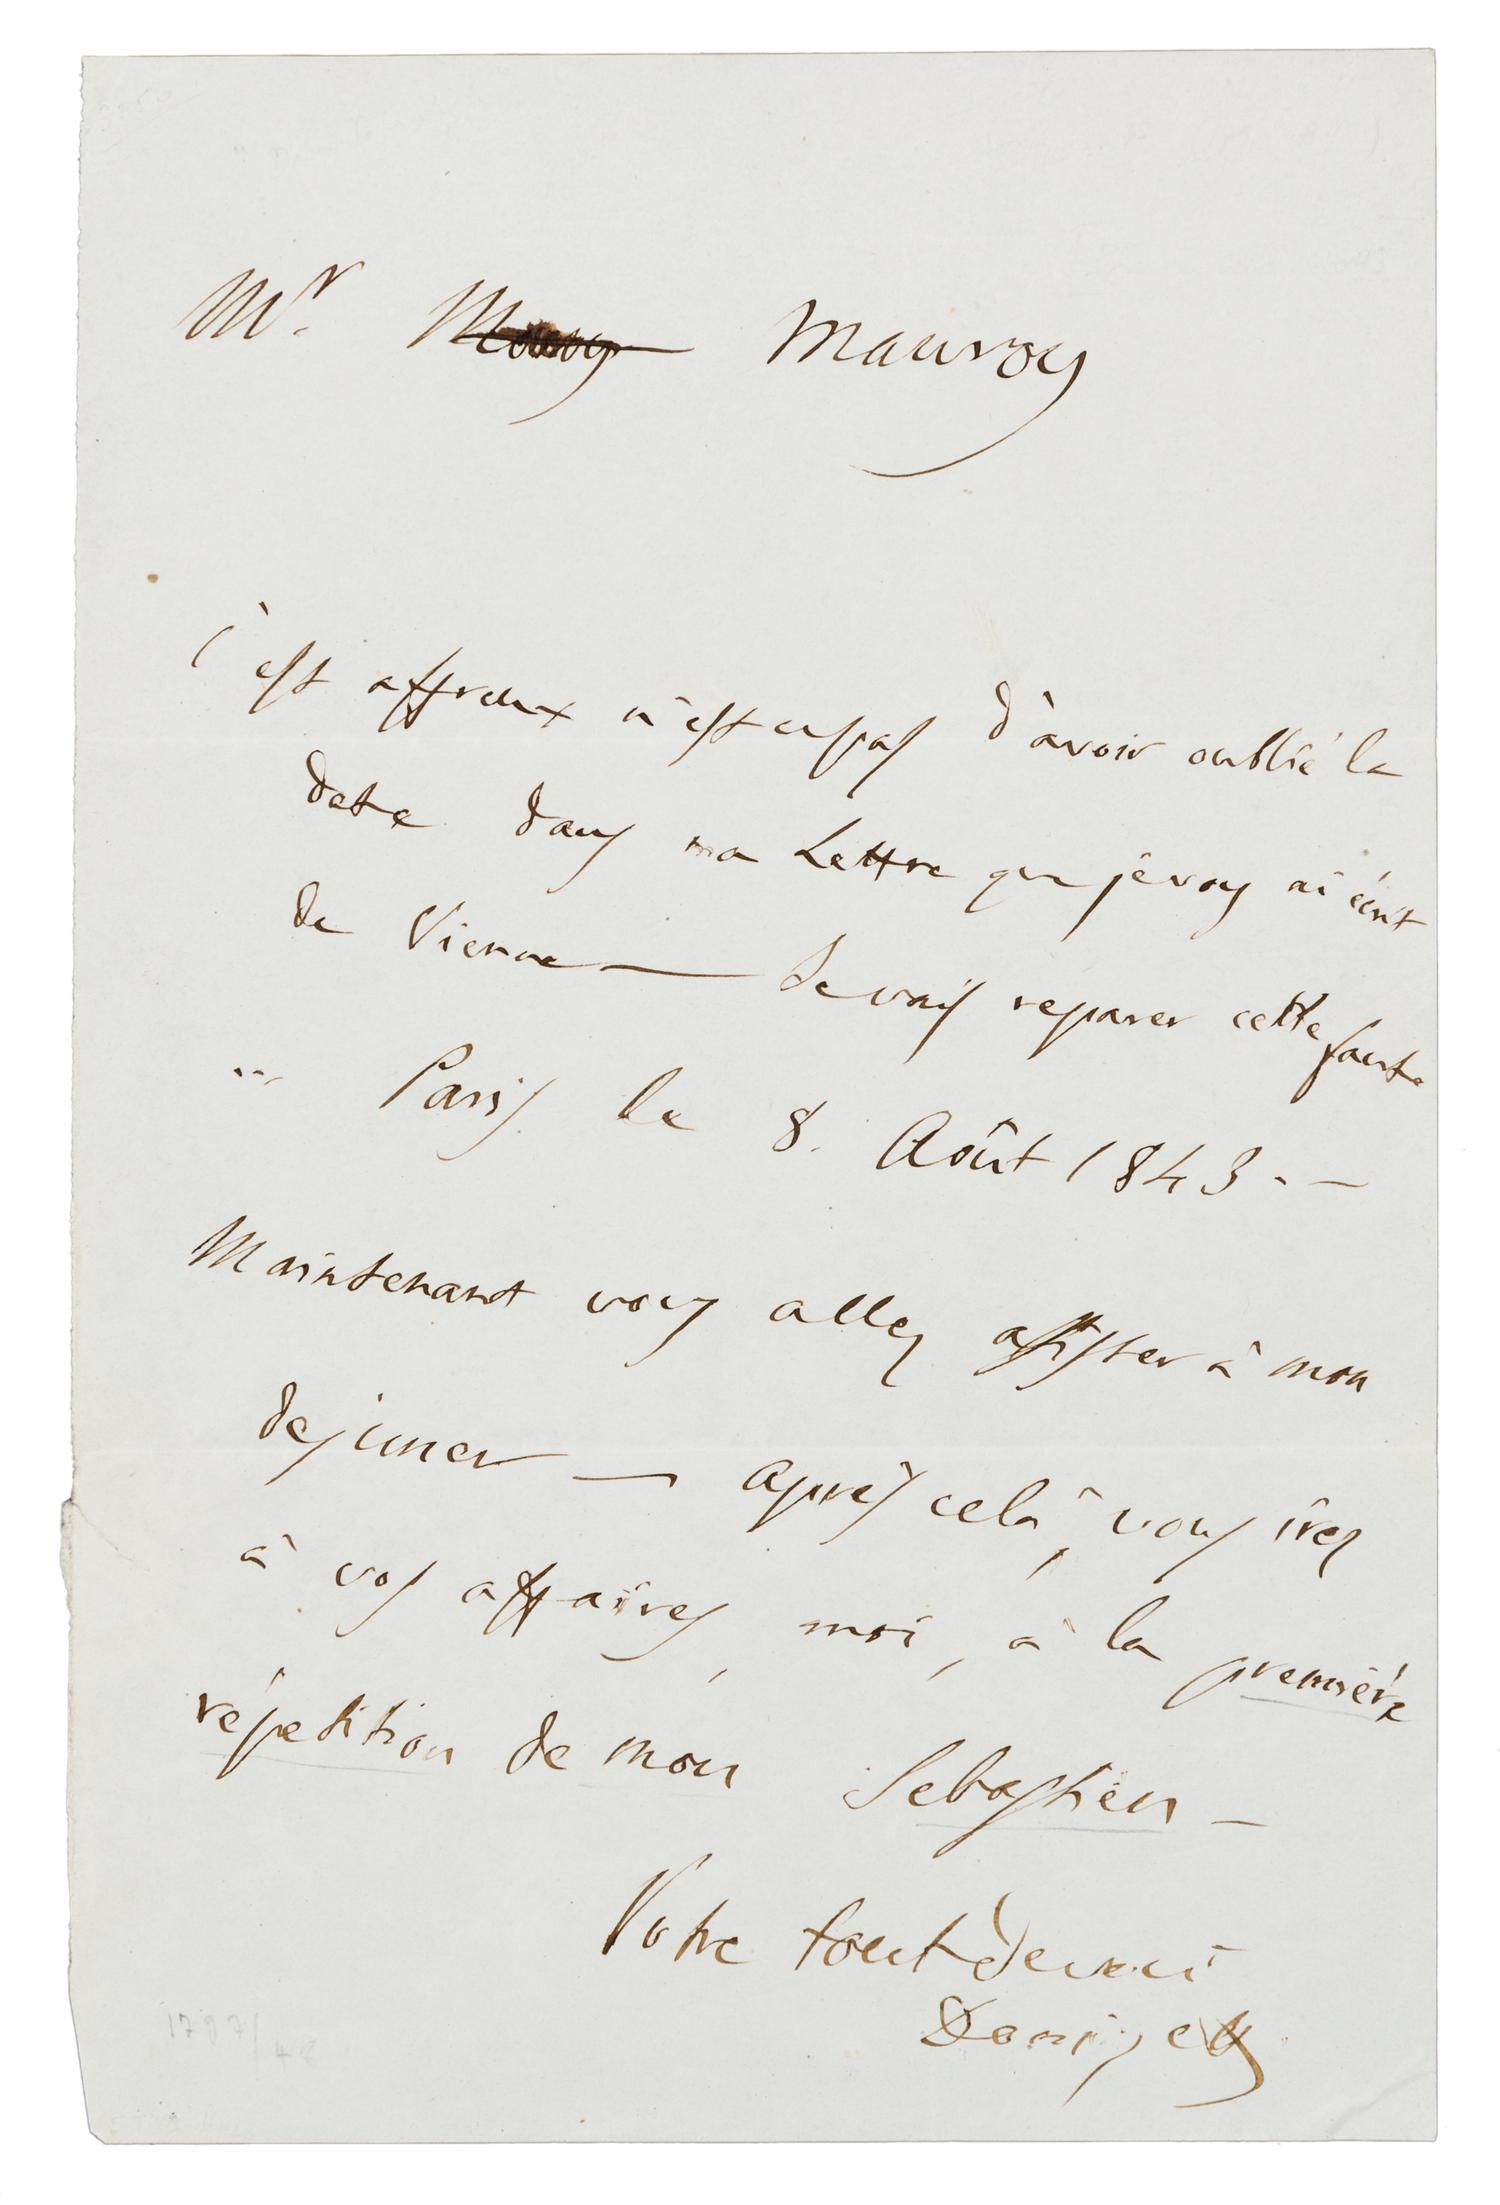 Mr. Mauroy
C'est affreux n'est ce pas d'avoir oublié la
date dans ma Lettre que je vous ai écrit
de Vienne — Je vais reparer cette faute
" Paris le 8. Août 1843. —
Maintenant vous allez assister à mon
dejuner — après celà, vous irez
à vos affaires, moi, à la première
répetition de mon Sebastien —
Votre tout devoué
Donizetti
1797/48